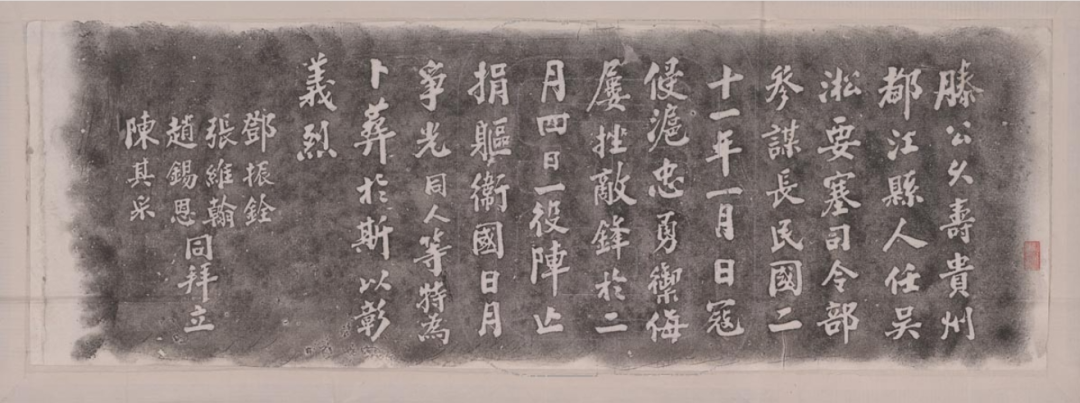 滕公久壽貴州
都江縣人任吳
淞要塞司令部
參謀長民國二
十一年一月日寇
侵滬忠勇禦侮
屢挫敵鋒於二
月四日一役陣亾
捐軀衛國日月
爭光同人等特為
卜葬於斯以彰
義烈
鄧振銓
張維翰
趙錫恩
陳其采
同拜立